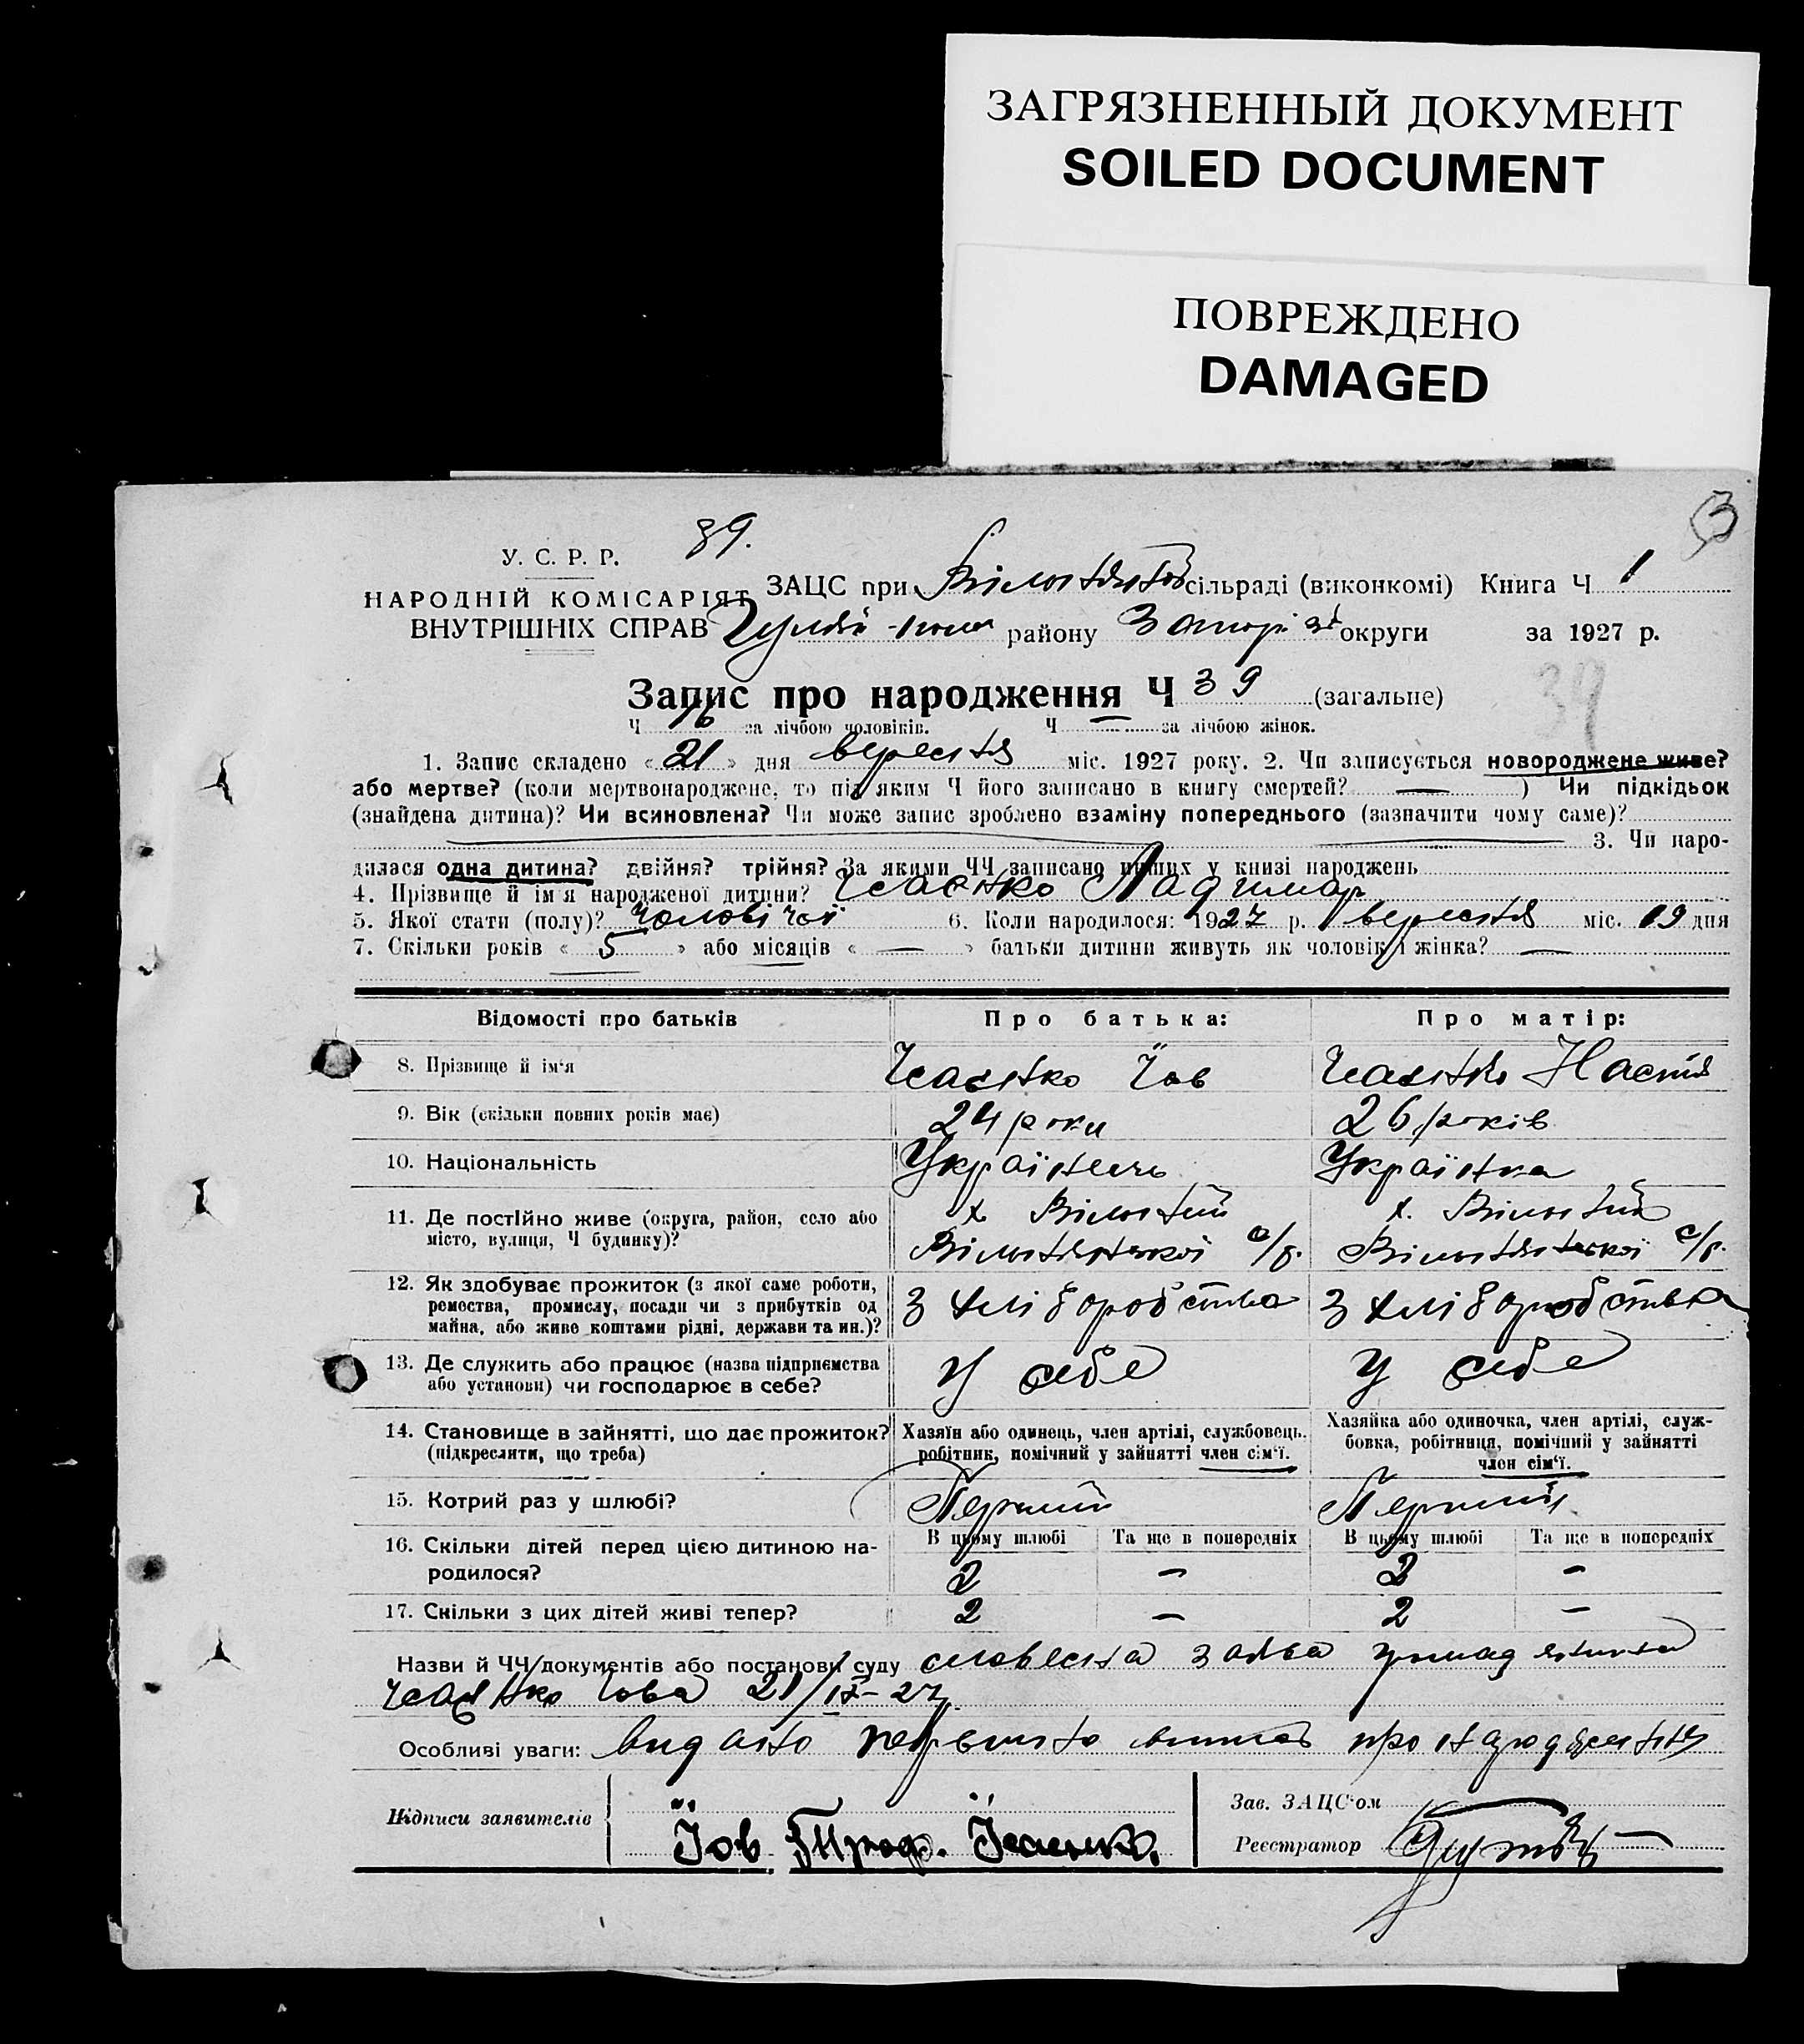 ЗАГРЯЗНЕННЫЙ ДОКУМЕНТ
SOILED DOCUMENT
ПОВРЕЖДЕНО
DAMAGED
3
У. С. Р. Р.
89.
НАРОДНІЙ КОМІСАРІЯТ
ВНУТРІШНІХ СПРАВ
ЗАЦС при сільраді (виконкомі) Книга Ч 1
Гуляй-поль району Запорізь округи за 1927 р.
Запис про народження Ч 39 (загальне)
39
Ч 16 за лічбою чоловіків. Ч — за лічбою жінок.
1. Запис складено «21» дня вересня міс. 1927 року. 2. Чи записується новороджене живе?
або мертве? (коли мертвонароджене, то під яким Ч його записано в книгу смертей? — ) Чи підкідьок
(знайдена дитина)? Чи всиновлена? Чи може запис зроблено взаміну попереднього (зазначити чому саме)?
3. Чи наро-
дилася одна дитина? двійня? трійня? За якими ЧЧ записано инших у книзі народжень
4. Прізвище й ім'я народженої дитини? Ісаєнко Ладимир
5. Якої стати (полу)? Чоловічої 6. Коли народилося: 1927 р. вересня міс. 19 дня
7. Скільки років « 5 » або місяців « — » батьки дитини живуть як чоловік і жінка? —
Відомості про батьків Про батька: Про матір:
8. Прізвище й ім'я Ісаєнко Їов Ісаєнко Настя
9. Вік (скільки повних років має) 24 роки 26 років
10. Національність Українець Українка
11. Де постійно живе (округа, район, село або
місто, вулиця, Ч будинку)?
х Вільний х. Вільний
с/р. с/р.
12. Як здобуває прожиток (з якої саме роботи,
ремества, промислу, посади чи з прибутків од
майна, або живе коштами рідні, держави та ин.)?
З хліборобства З хліборобства
13. Де служить або працює (назва підприємства
або установи) чи господарює в себе?
У себе У себе
14. Становище в зайнятті, що дає прожиток?
(підкреслити, що треба)
Хазяїн або одинець, член артілі, службовець,
робітник, помічний у зайнятті член сім'ї.
Хазяйка або одиночка, член артілі, служ-
бовка, робітниця, помічний у зайнятті
член сім'ї.
15. Котрий раз у шлюбі? Перший Перший
16. Скільки дітей перед цією дитиною на-
родилося?
В цьому шлюбі Та ще в попередніх В цьому шлюбі Та ще в попередніх
2 — 2 —
17. Скільки з цих дітей живі тепер? 2 — 2 —
Назви й ЧЧ документів або постанови суду словесна заява громадянина
Ісаєнко Іова 21/IX-27
Особливі уваги: видано первисно виписа про народження
Підписи заявителів
Їов Проф. Їсаєнко.
Зав. ЗАЦС'ом
Реєстратор